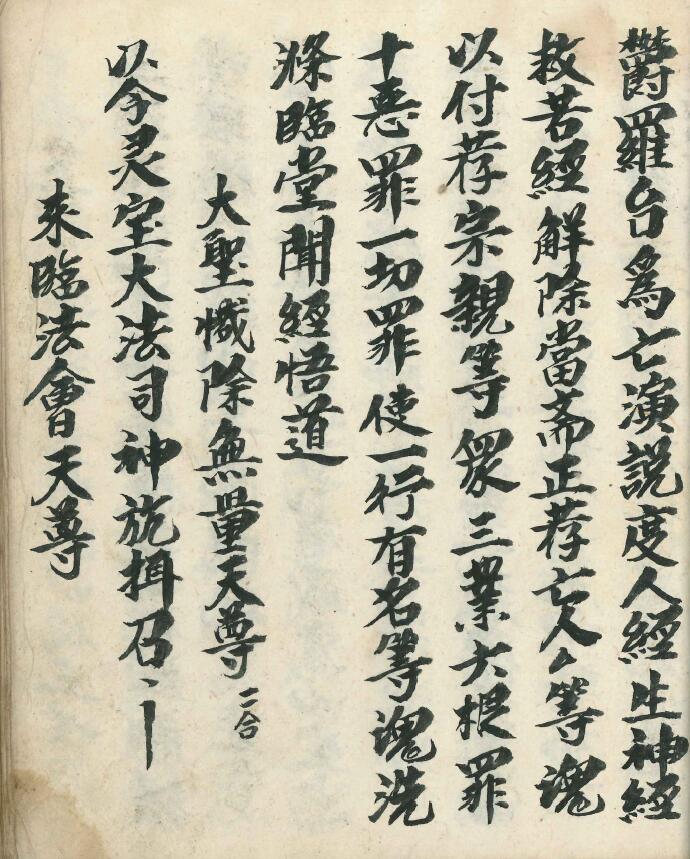 欝羅台為亡演説度人經生神經
救苦經解除當斋正荐亡人厶等魂
以付荐宗親等眾三業六根罪
十惡罪一切罪使一行有名等魂洗
滌臨堂聞經悟道
大聖懺除無量天尊 二合
以今灵宝大法司神旌揖召
來臨法會天尊